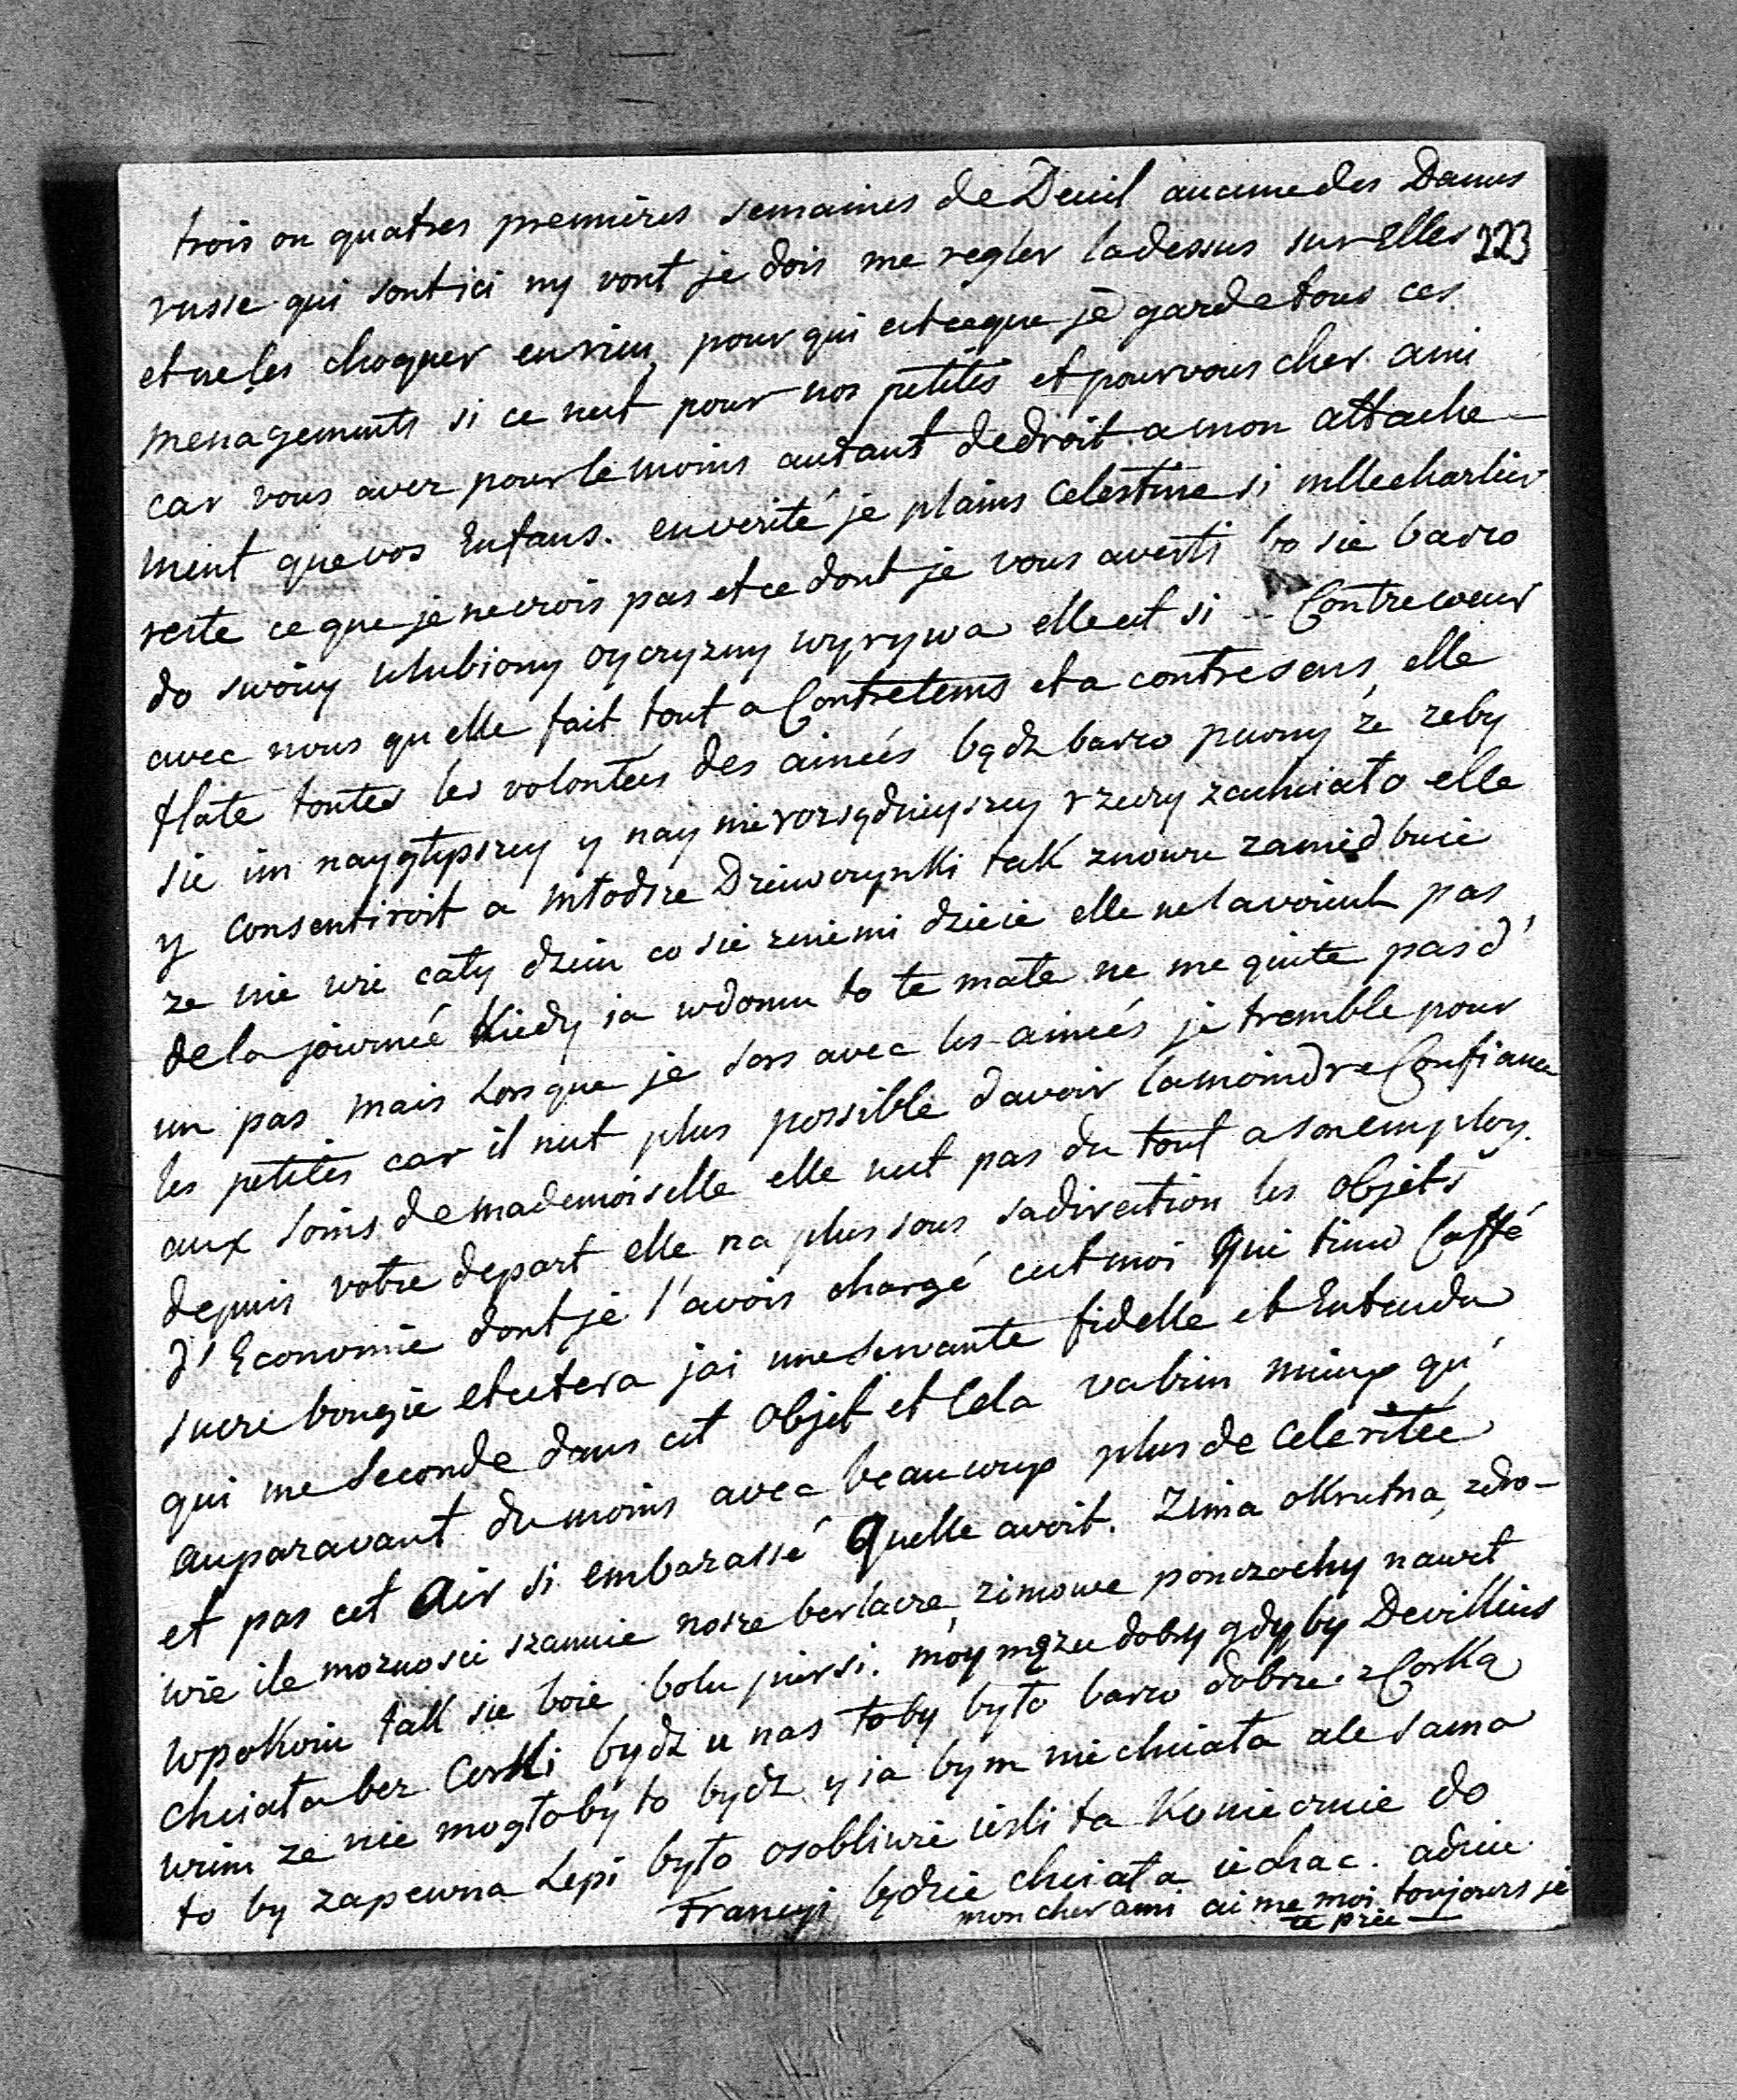 trois ou quatres premières semaines de Deuil aucune des Dames
russe qui sont ici ny vont je dois me regler ladessus sur Elles
223
et ne les choquer en rien, pour qui est ceque je garde tous ces
menagements si ce nest pour nos petites et pour vous cher ami
car vous avez pour le moins autant de droit a mon attache-
ment que vos Enfans. en verité je plains Celestine si mlle charlier
reste ce que je ne crois pas et ce dont je vous averti bo sie barzo
do swoiy ulubiony oyczyzny wyrywa elle est si Contrecoeur
avec nous qu elle fait tout a Contretems et a contresens, elle
flate toutes les volontées des ainées bądz barzo pewny ze zeby
sie im naygłupszey y nay nierozsądnieyszey rzeczy zachciało elle
y consentiroit a młodsze Dziewczynki tak znowu zaniedbuie
ze nie wie cały dzien co sie zniemi dzieie elle ne lavoient pas
de la journée Kiedy ia wdomu to te małe ne me quite pas d'
un pas mais Lors que je sors avec les ainées je tremble pour
les petites car il nest plus possible davoir la moindre Confiance
aux soins de mademoiselle elle nest pas du tout a son employ.
depuis votre depart elle na plus sous sa direction les objets
d'Economie dont je l'avois chargé cest moi Qui tiend Caffé
sucre bougie etcetera jai une servante fidelle et Entendu
qui me seconde dans cet objet et Cela va bien mieux qu'
auparavant du moins avec beaucoup plus de celeritée
et pas cet Air si embarassé Quelle avoit. Zima okrutna, zdro-
wie ile moznosci szanuie nosze berlacze, zimowe ponczochy nawet
wpokoiu tak sie boie bolu piersi. móy mężu dobry gdyby Devilliers
chciała bez Corki bydz u nas toby było barzo dobrze. z Corką
wiem ze nie mogłoby to bydz y ia bym nie chciała ale sama
to by zapewna Lepi było osobliwie iesli ta Koniecznie do
Francyi będzie chciała iechac. adieu
mon cher ami aime moi toujours je
te prie